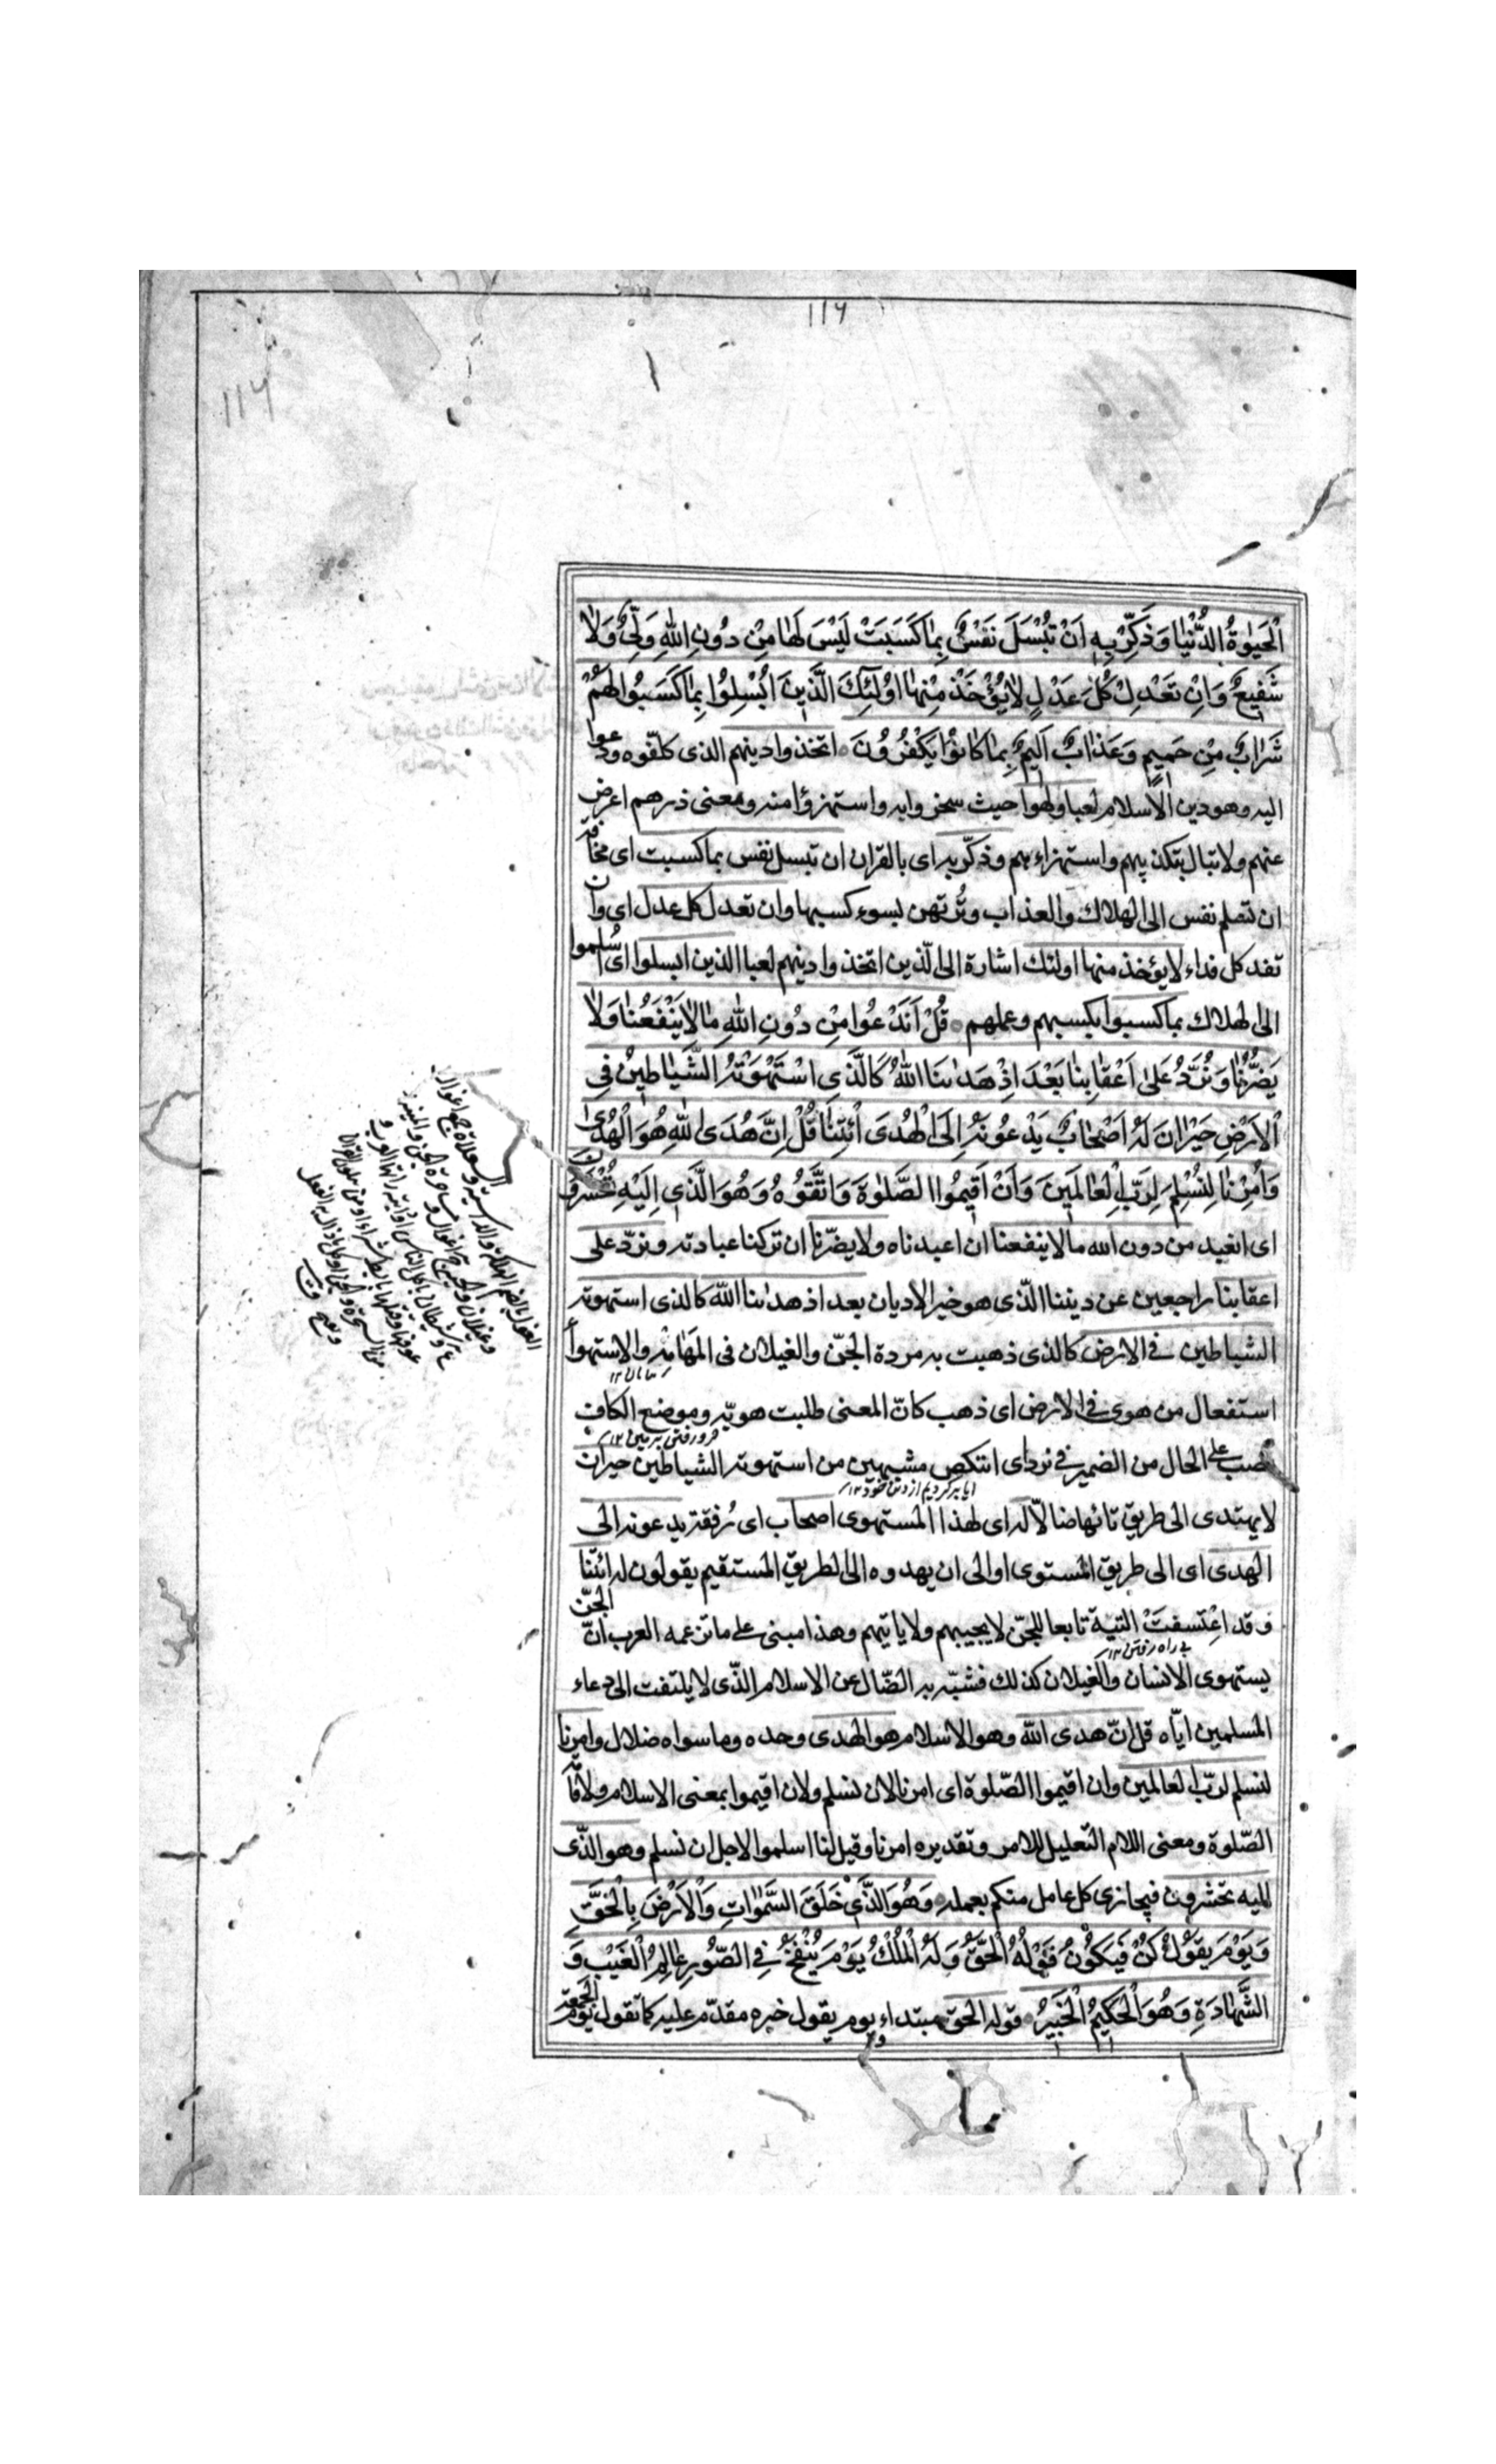 ١١٦
١١٦
الْحَيٰوةُ الدُّنْيَا وَذَكِّرْ بِهِ اَنْ تُبْسَلَ نَفْسٌ بِمَا كَسَبَتْ لَيْسَ لَهَا مِنْ دُونِ اللّٰهِ وَلِيٌّ وَلَا
شَفِيعٌ وَاِنْ تَعْدِلْ كُلَّ عَدْلٍ لَا يُؤْخَذْ مِنْهَا اُولٰئِكَ الَّذِينَ اُبْسِلُوا بِمَا كَسَبُوا لَهُمْ
شَرَابٌ مِنْ حَمِيمٍ وَعَذَابٌ اَلِيمٌ بِمَا كَانُوْا يَكْفُرُوُنَ اتخذوا دينهم الذى كلّفوه ودعوا
اليه وهو دين الاسلام لعبا ولهوا حيث سخروا به واستهزؤا منه ومعنى ذرهم اعرض
عنهم ولا تبال بتكذيبهم واستهزاءهم وذكّر به اى بالقران ان تبسل نفس بما كسبت اى مخافة
ان تسلم نفس الى الهلاك والعذاب وتُرتهن بسوء كسبها وان تعدل كل عدل اى وان
تفد كل فداء لا يؤخذ منها اولئك اشارة الى الّذين اتخذوا دينهم لعبا الذين ابسلوا اى اُسلموا
الى الهلاك بما كسبوا بكسبهم وعملهم قُلْ اَنَدْعُوا مِنْ دُونِ اللّٰهِ مَا لَا يَنْفَعُنَا وَلَا
يَضُرُّنَا وَنُرَدُّ عَلٰى اَعْقَابِنَا بَعْدَ اِذْ هَدٰىنَا اللّٰهُ كَالَّذِى اسْتَهْوَتْهُ الشَّيَاطِينُ فِى
الْاَرْضِ حَيْرَانَ لَهُ اَصْحَابٌ يَدْعُونَهُ اِلَى الْهُدَى ائْتِنَا قُلْ اِنَّ هُدَى اللّٰهِ هُوَ الْهُدٰى
وَاُمِرْنَا لِنُسْلِمَ لِرَبِّ الْعَالَمِينَ وَاَنْ اَقِيمُوا الصَّلٰوةَ وَاتَّقُوُهُ وَهُوَ الَّذِى اِلَيْهِ تُحْشَرُونَ
اى انعبد من دون الله ما لا ينفعنا ان اعبدناه ولا يضرّنا ان تركنا عبادته ونردّ على
اعقابنا راجعين عن ديننا الذّى هو خير الاديان بعد اذ هدٰىنا اللّٰه كالذى استهوته
الشياطين فى الارض كالذى ذهبت به مردة الجنّ والغيلان فى المَهَامِهِ والاستهوا
استفعال من هوى فى الارض اى ذهب كانّ المعنى طلبت هويّه وموضع الكاف
نصب على الحال من الضمير فى نرد اى اننكص مشبهين من استهوته الشياطين حيران
لا يهتدى الى طريق تائها ضالّا له اى لهذا المستهوى اصحاب اى رُفقة يدعونه الى
الهدى اى الى طريق المستوى او الى ان يهدوه الى الطريق المستقيم يقولون له ائتنا
وقد اعتسفت التية تابعا للجنّ لا يجيبهم ولا ياتيهم وهذا مبنى على ما تزعمه العرب انّ الجنّ
يستهوى الانسان والغيلان كذلك فشبّه به الضّال عن الاسلام الذّى لا يلتفت الى دعاء
المسلمين ايّاه قل انّ هدى اللّٰه وهو الاسلام هو الهدى وحده وما سواه ضلال وامرنا
لنسلم لربّ العالمين وان اقيموا الصّلوة اى امرنا لان نسلم ولان اقيموا بمعنى الاسلام ولاقا
الصّلوة ومعنى اللام التعليل للامر وتقديره امرنا وقيل لنا اسلموا لاجل ان نسلم وهو الذّى
اليه تحشرون فيجازى كل عامل منكم بعمله وَهُوَ الَّذِىْ خَلَقَ السَّمٰوَاتِ وَالْاَرْضَ بِالْحَقِّ
وَيَوْمَ يَقُوْلُ كُنْ فَيَكُوْنُ قَوْلُهُ الْحَقُّ وَلَهُ الْمُلْكُ يَوْمَ يُنْفَخُ فِى الصّوُرِ عَالِمُ الْغَيْبِ وَ
الشَّهَادَةِ وَهُوَ الْحَكِيمُ الْخَبِيرُ قوله الحق مبتداء ويوم يقول خبره مقدّم عليه كما تقول يوم الجمعة
بيابان ١٢
فرو رفتن بزمين ١٢
ايا برگرديم از دين خود ١٢
بى راه رفتن ١٢
الغول بالضم الهلكة والداهية والسعلاة ج اغوال
وغيلان